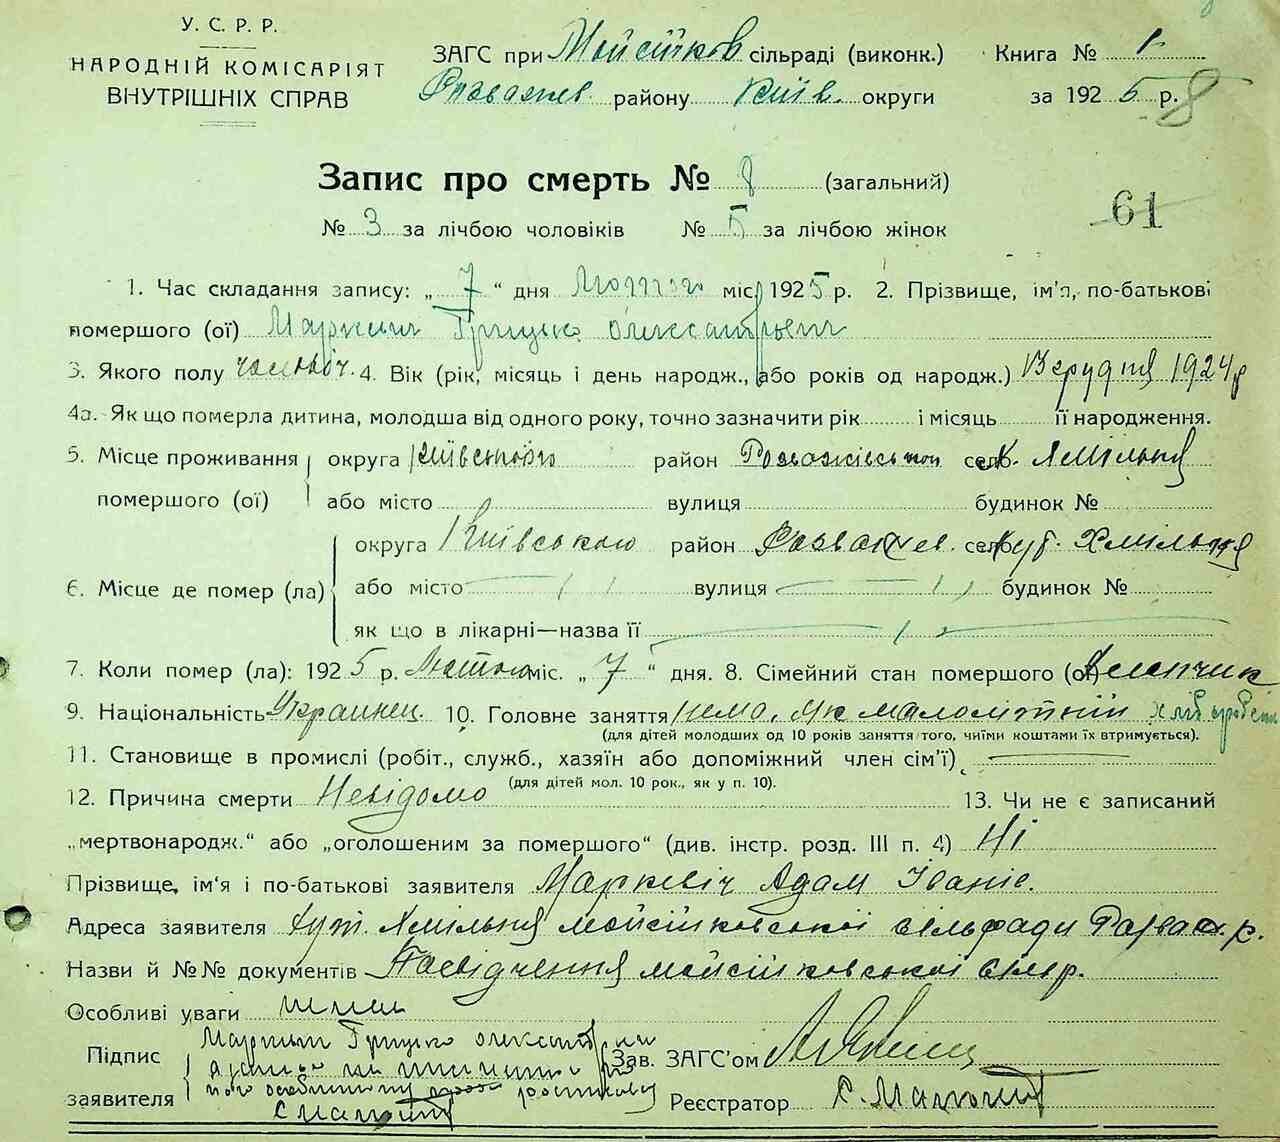 У. С. Р. Р.
НАРОДНІЙ КОМІСАРІЯТ
ВНУТРІШНІХ СПРАВ
ЗАГС при Мойсійков сільраді (виконк.)
Розважев. району Київ. округи
Книга № 1
за 1925 р. 8
Запис про смерть № 8 (загальний)
№ 3 за лічбою чоловіків № 5 за лічбою жінок
61
1. Час складання запису: „ 7 “ дня Лютого міс. 1925 р. 2. Прізвище, ім'я, по-батькові
помершого (ої) Грицько Олександрович
3. Якого полу чоловіч. 4. Вік (рік, місяць і день народж., або років од народж.) грудня 1924 р
4а. Як що померла дитина, молодша від одного року, точно зазначити рік і місяць її народження.
5. Місце проживання округа Київського район Розважівськои село х. Хмільня
помершого (ої) або місто вулиця будинок №
округа Київського район Розважев. село хут. Хмільня
6. Місце де помер (ла) або місто вулиця будинок №
як що в лікарні—назва її
7. Коли помер (ла): 1925 р. Лютого міс. „ 7 “ дня. 8. Сімейний стан помершого (ої)
9. Національність Украинец. 10. Головне заняття нема, як малолітній хлібороб
(для дітей молодших од 10 років заняття того, чиїми коштами їх втримується).
11. Становище в промислі (робіт., служб., хазяїн або допоміжний член сім'ї)
(для дітей мол. 10 рок., як у п. 10).
12. Причина смерти Невідомо 13. Чи не є записаний
„мертвонародж.“ або „оголошеним за помершого“ (див. інстр. розд. III п. 4) Ні
Прізвище, ім'я і по-батькові заявителя Маркевіч Адам Іванів.
Адреса заявителя хут. Хмільня мойсійковської сільради Розваж. р.
Назви й №№ документів Посвідчення мойсійковської сільр.
Особливі уваги
Підпис Грицько
заявителя
Зав. ЗАГС'ом
Реєстратор С.